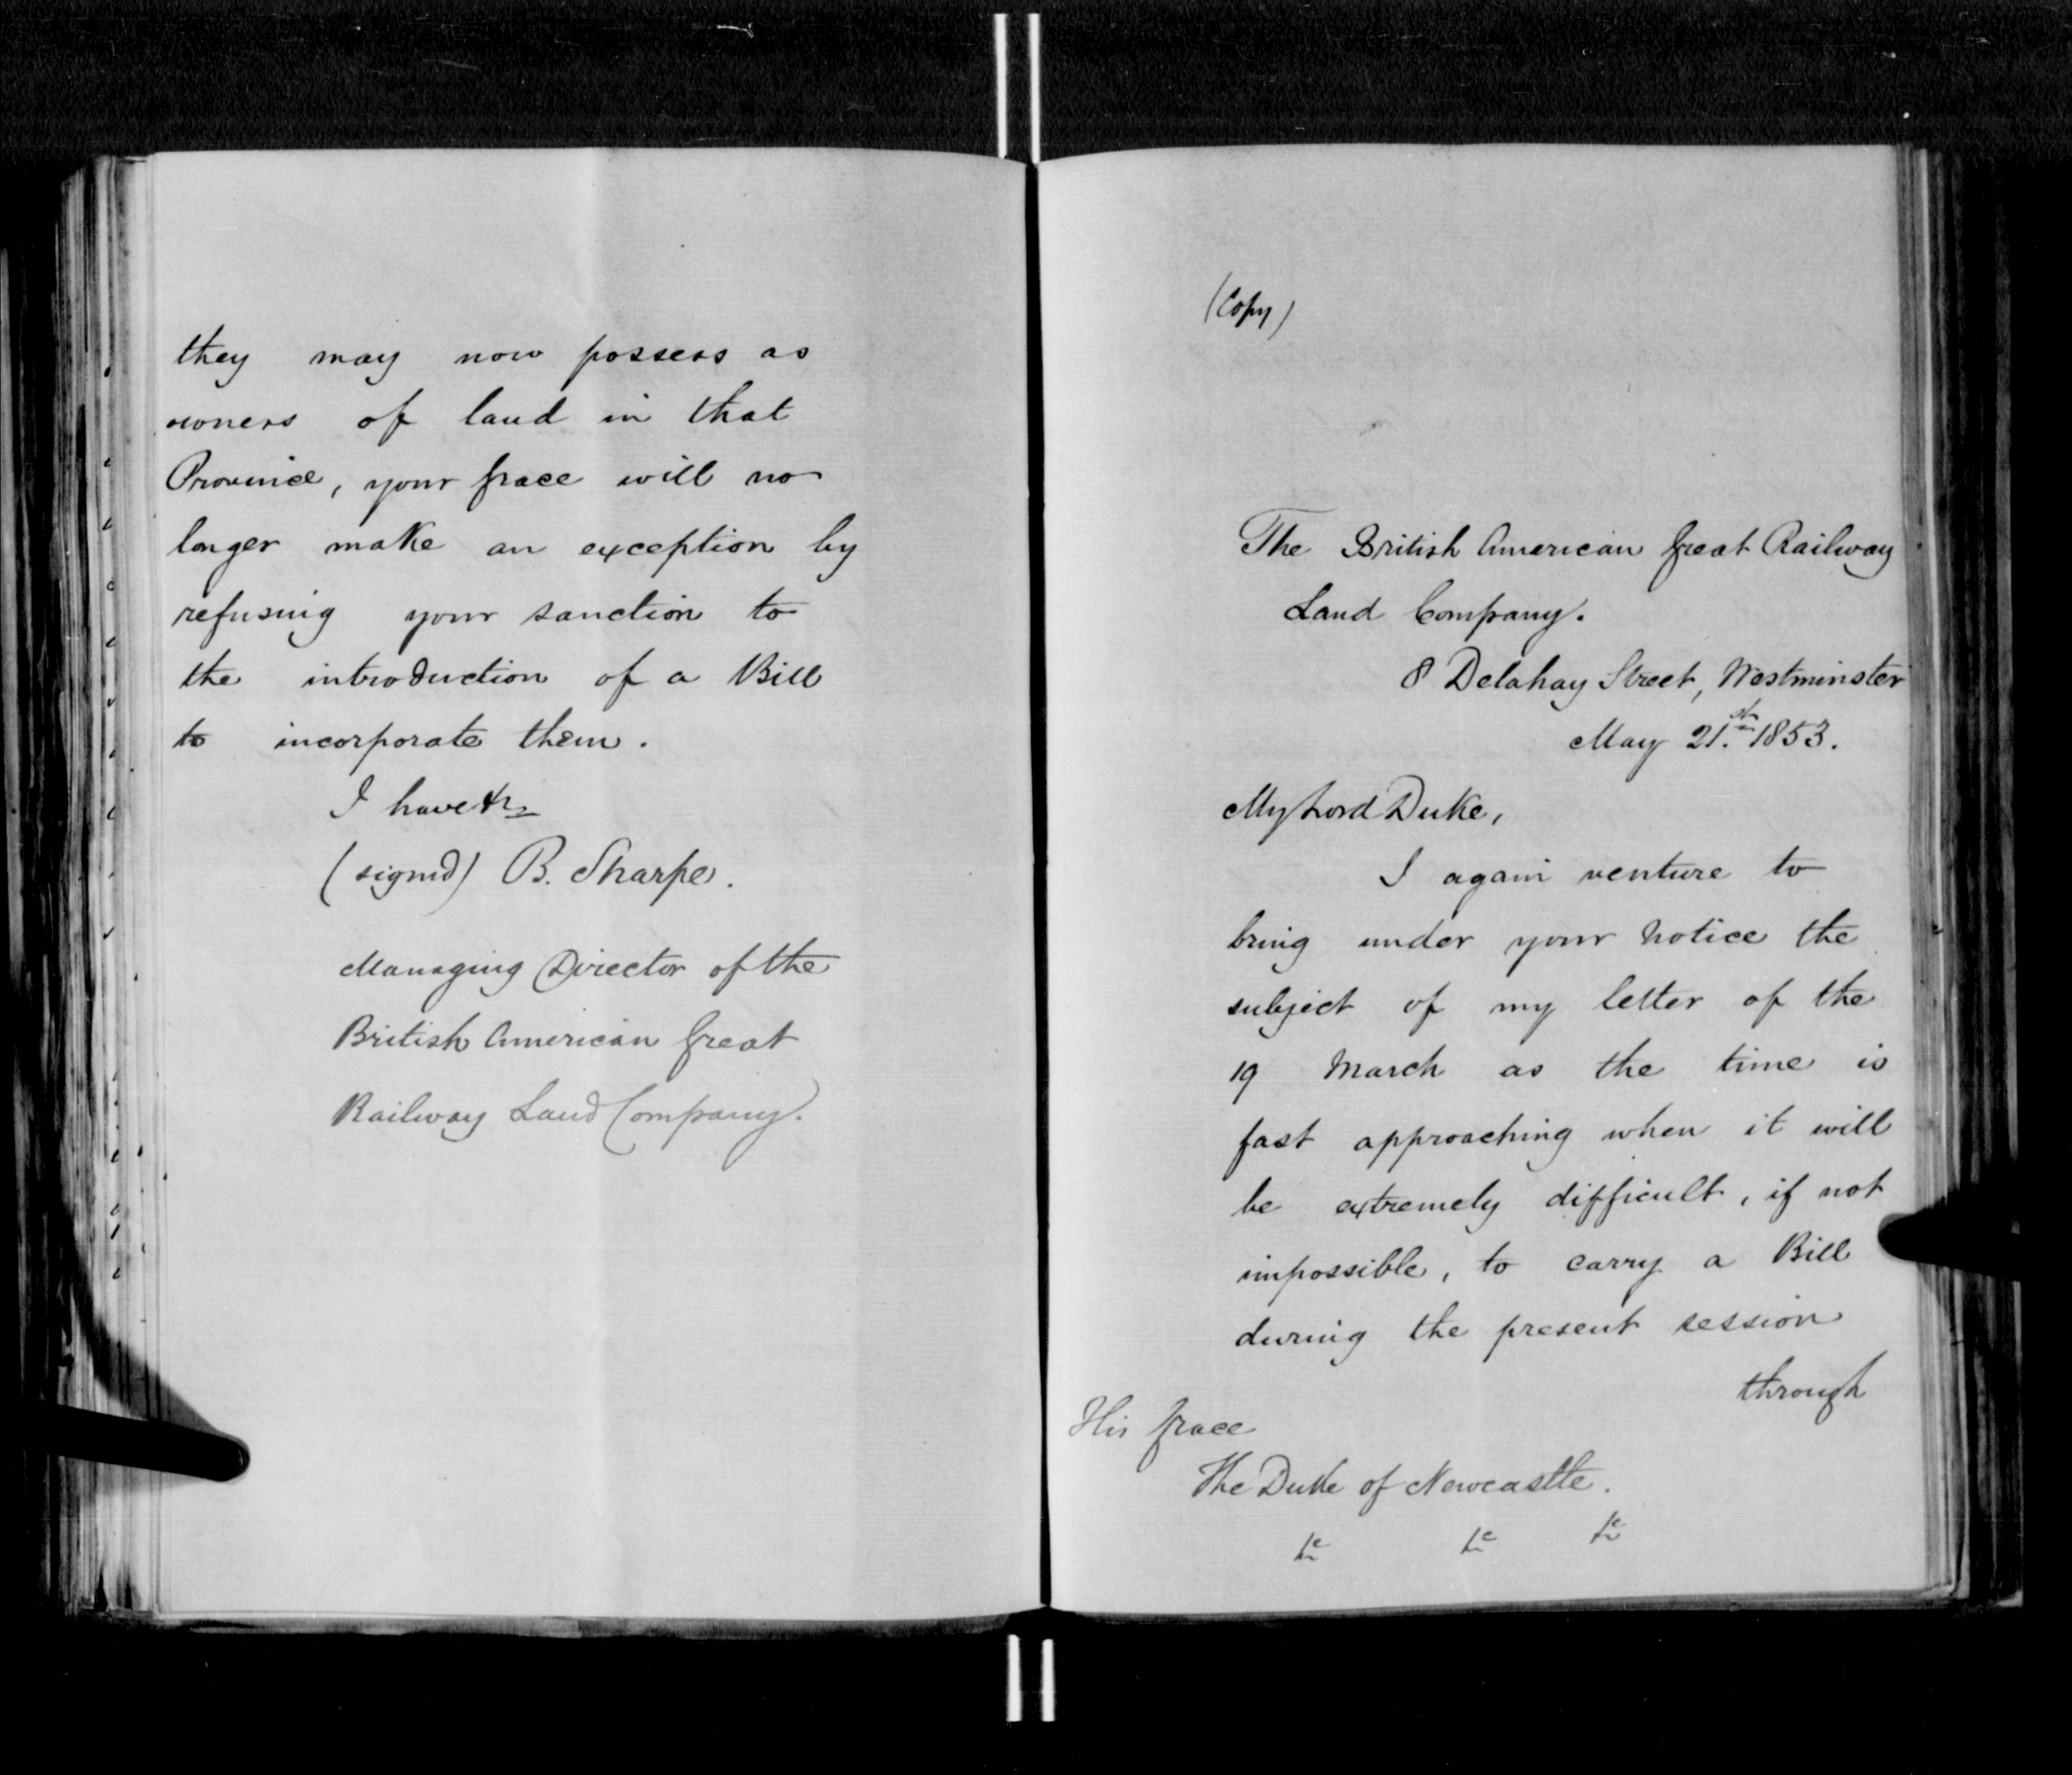 they may now possess as
owners of land in that
Province, your Grace will no
longer make an exception by
refusing your sanction to
the introduction of a Bill
to incorporate them.
I have &c
(signed) B. Sharpe.
Managing Director of the
British American Great
Railway Land Company.
(Copy)
The British American Great Railway
Land Company.
8 Delahay Street, Westminster
May 21.st 1853.
My Lord Duke,
I again venture to
bring under your notice the
subject of my letter of the
19 March as the time is
fast approaching when it will
be extremely difficult, if not
impossible, to carry a Bill
during the present session
through
His Grace
The Duke of Newcastle.
&c &c &c